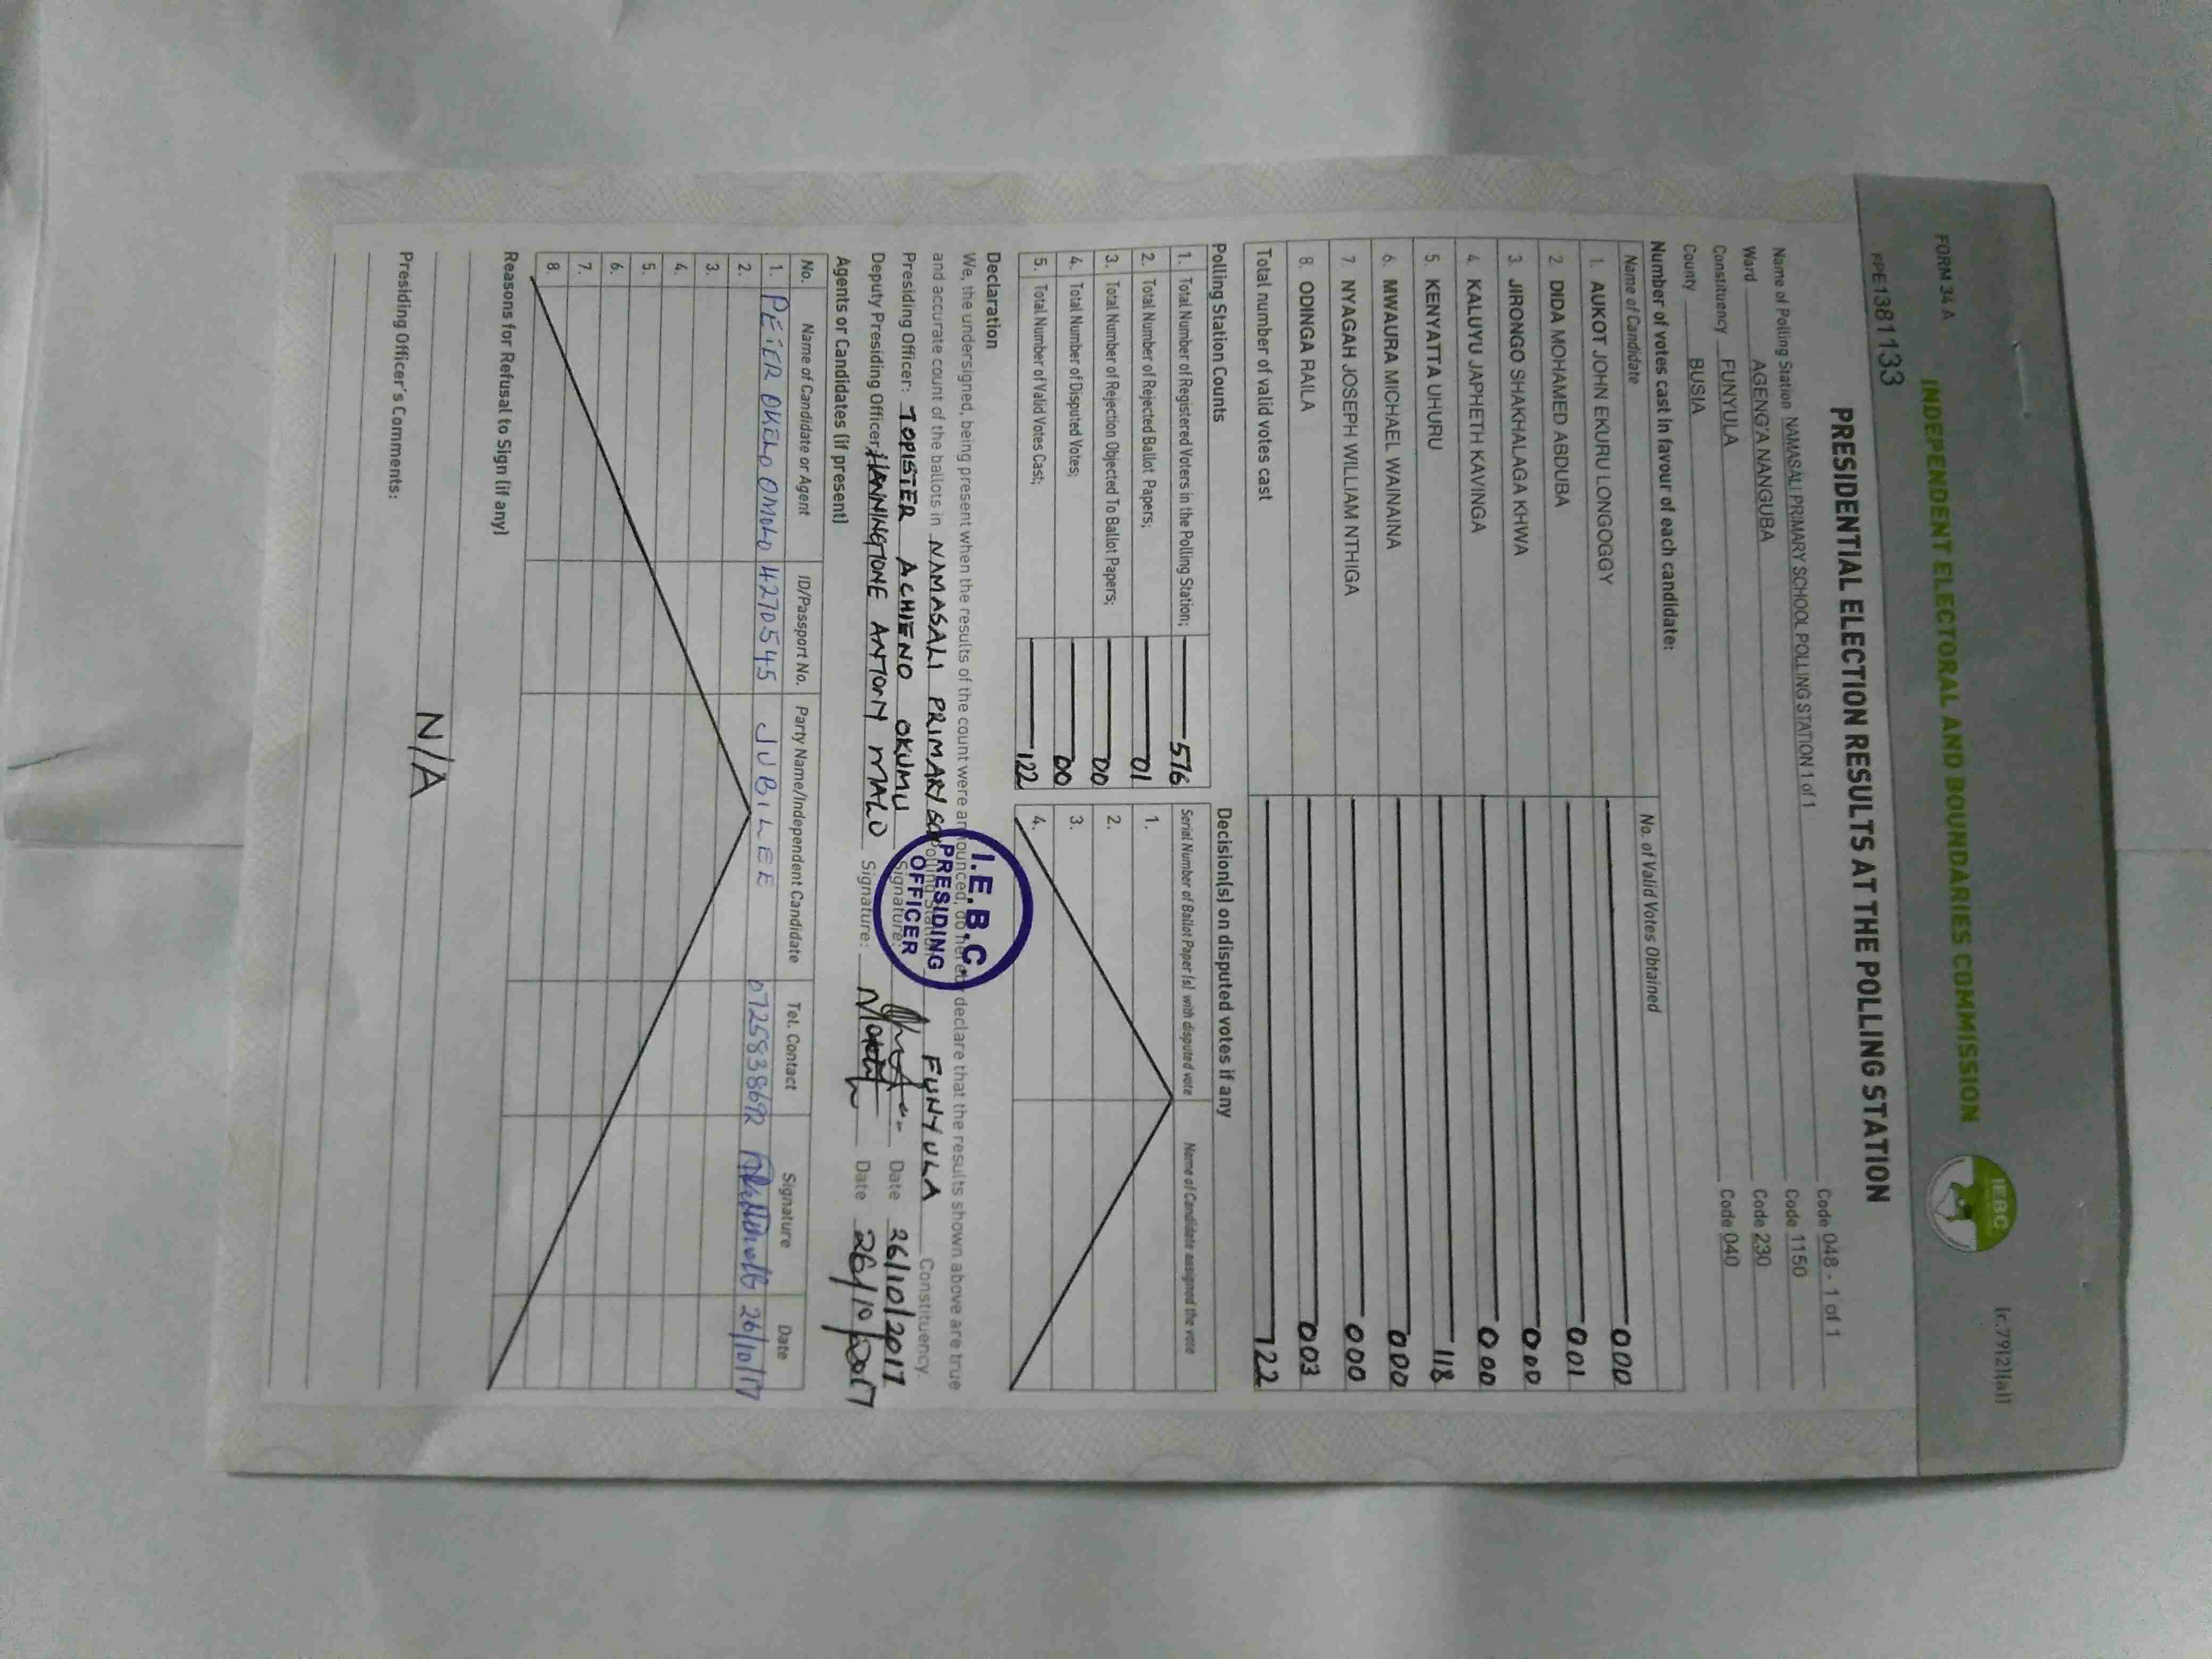 FORM 34 A
(r.79(2)(a))
INDEPENDENT ELECTORAL AND BOUNDARIES COMMISSION
IEBC
PPE1381133
PRESIDENTIAL ELECTION RESULTS AT THE POLLING STATION
Name of Polling Station NAMASALI PRIMARY SCHOOL POLLING STATION 1 of 1 Code 048 - 1 of 1
Ward AGENG'A NANGUBA Code 1150
Constituency FUNYULA Code 230
County BUSIA Code 040
Number of votes cast in favour of each candidate:
Name of Candidate No. of Valid Votes Obtained
1. AUKOT JOHN EKURU LONGOGGY 000
2. DIDA MOHAMED ABDUBA 001
3. JIRONGO SHAKHALAGA KHWA 000
4. KALUYU JAPHETH KAVINGA 000
5. KENYATTA UHURU 118
6. MWAURA MICHAEL WAINAINA 000
7. NYAGAH JOSEPH WILLIAM NTHIGA 000
8. ODINGA RAILA 003
Total number of valid votes cast 122
Polling Station Counts
1. Total Number of Registered Voters in the Polling Station; 576
2. Total Number of Rejected Ballot Papers; 01
3. Total Number of Rejection Objected To Ballot Papers; 00
4. Total Number of Disputed Votes; 00
5. Total Number of Valid Votes Cast; 122
Decision(s) on disputed votes if any
Serial Number of Ballot Paper (s) with disputed vote Name of Candidate assigned the vote
1.
2.
3.
4.
Declaration
We, the undersigned, being present when the results of the count were announced, do hereby declare that the results shown above are true
and accurate count of the ballots in NAMASALI PRIMARY Polling Station FUNYULA Constituency.
Presiding Officer: TOPISTER ACHIENO OKUMU Signature: Date 26/10/2017
Deputy Presiding Officer: HANNINGTONE ANTONY MALO Signature: Date 26/10/2017
I.E.B.C.
PRESIDING
OFFICER
Agents or Candidates (if present)
No. Name of Candidate or Agent ID/Passport No. Party Name/Independent Candidate Tel. Contact Signature Date
1. PETER OKELLO OMOLO 4270545 JUBILEE 0725838692 26/10/17
2.
3.
4.
5.
6.
7.
8.
Reasons for Refusal to Sign (if any)
N/A
Presiding Officer's Comments: